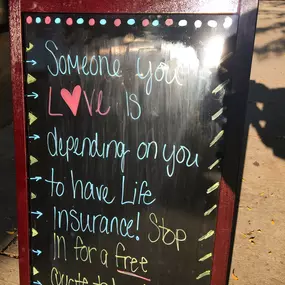 Someone you
LOVE is
depending on you
to have Life
Insurance! Stop
IN for a free
quote